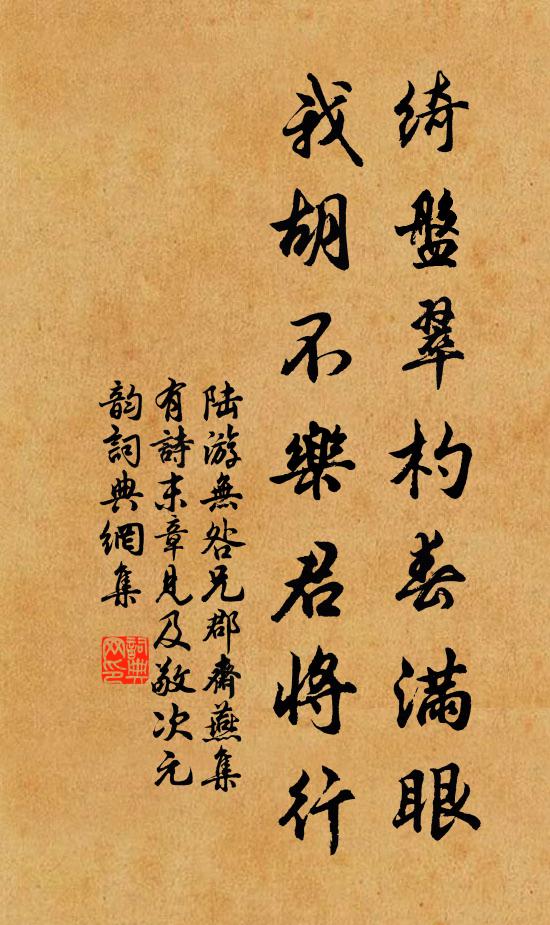 綺盤翠杓春滿眼
我胡不樂君將行
陆游無咎兄郡齋燕集
有詩末章見及敬次元
韵詞典網集
詞典网印